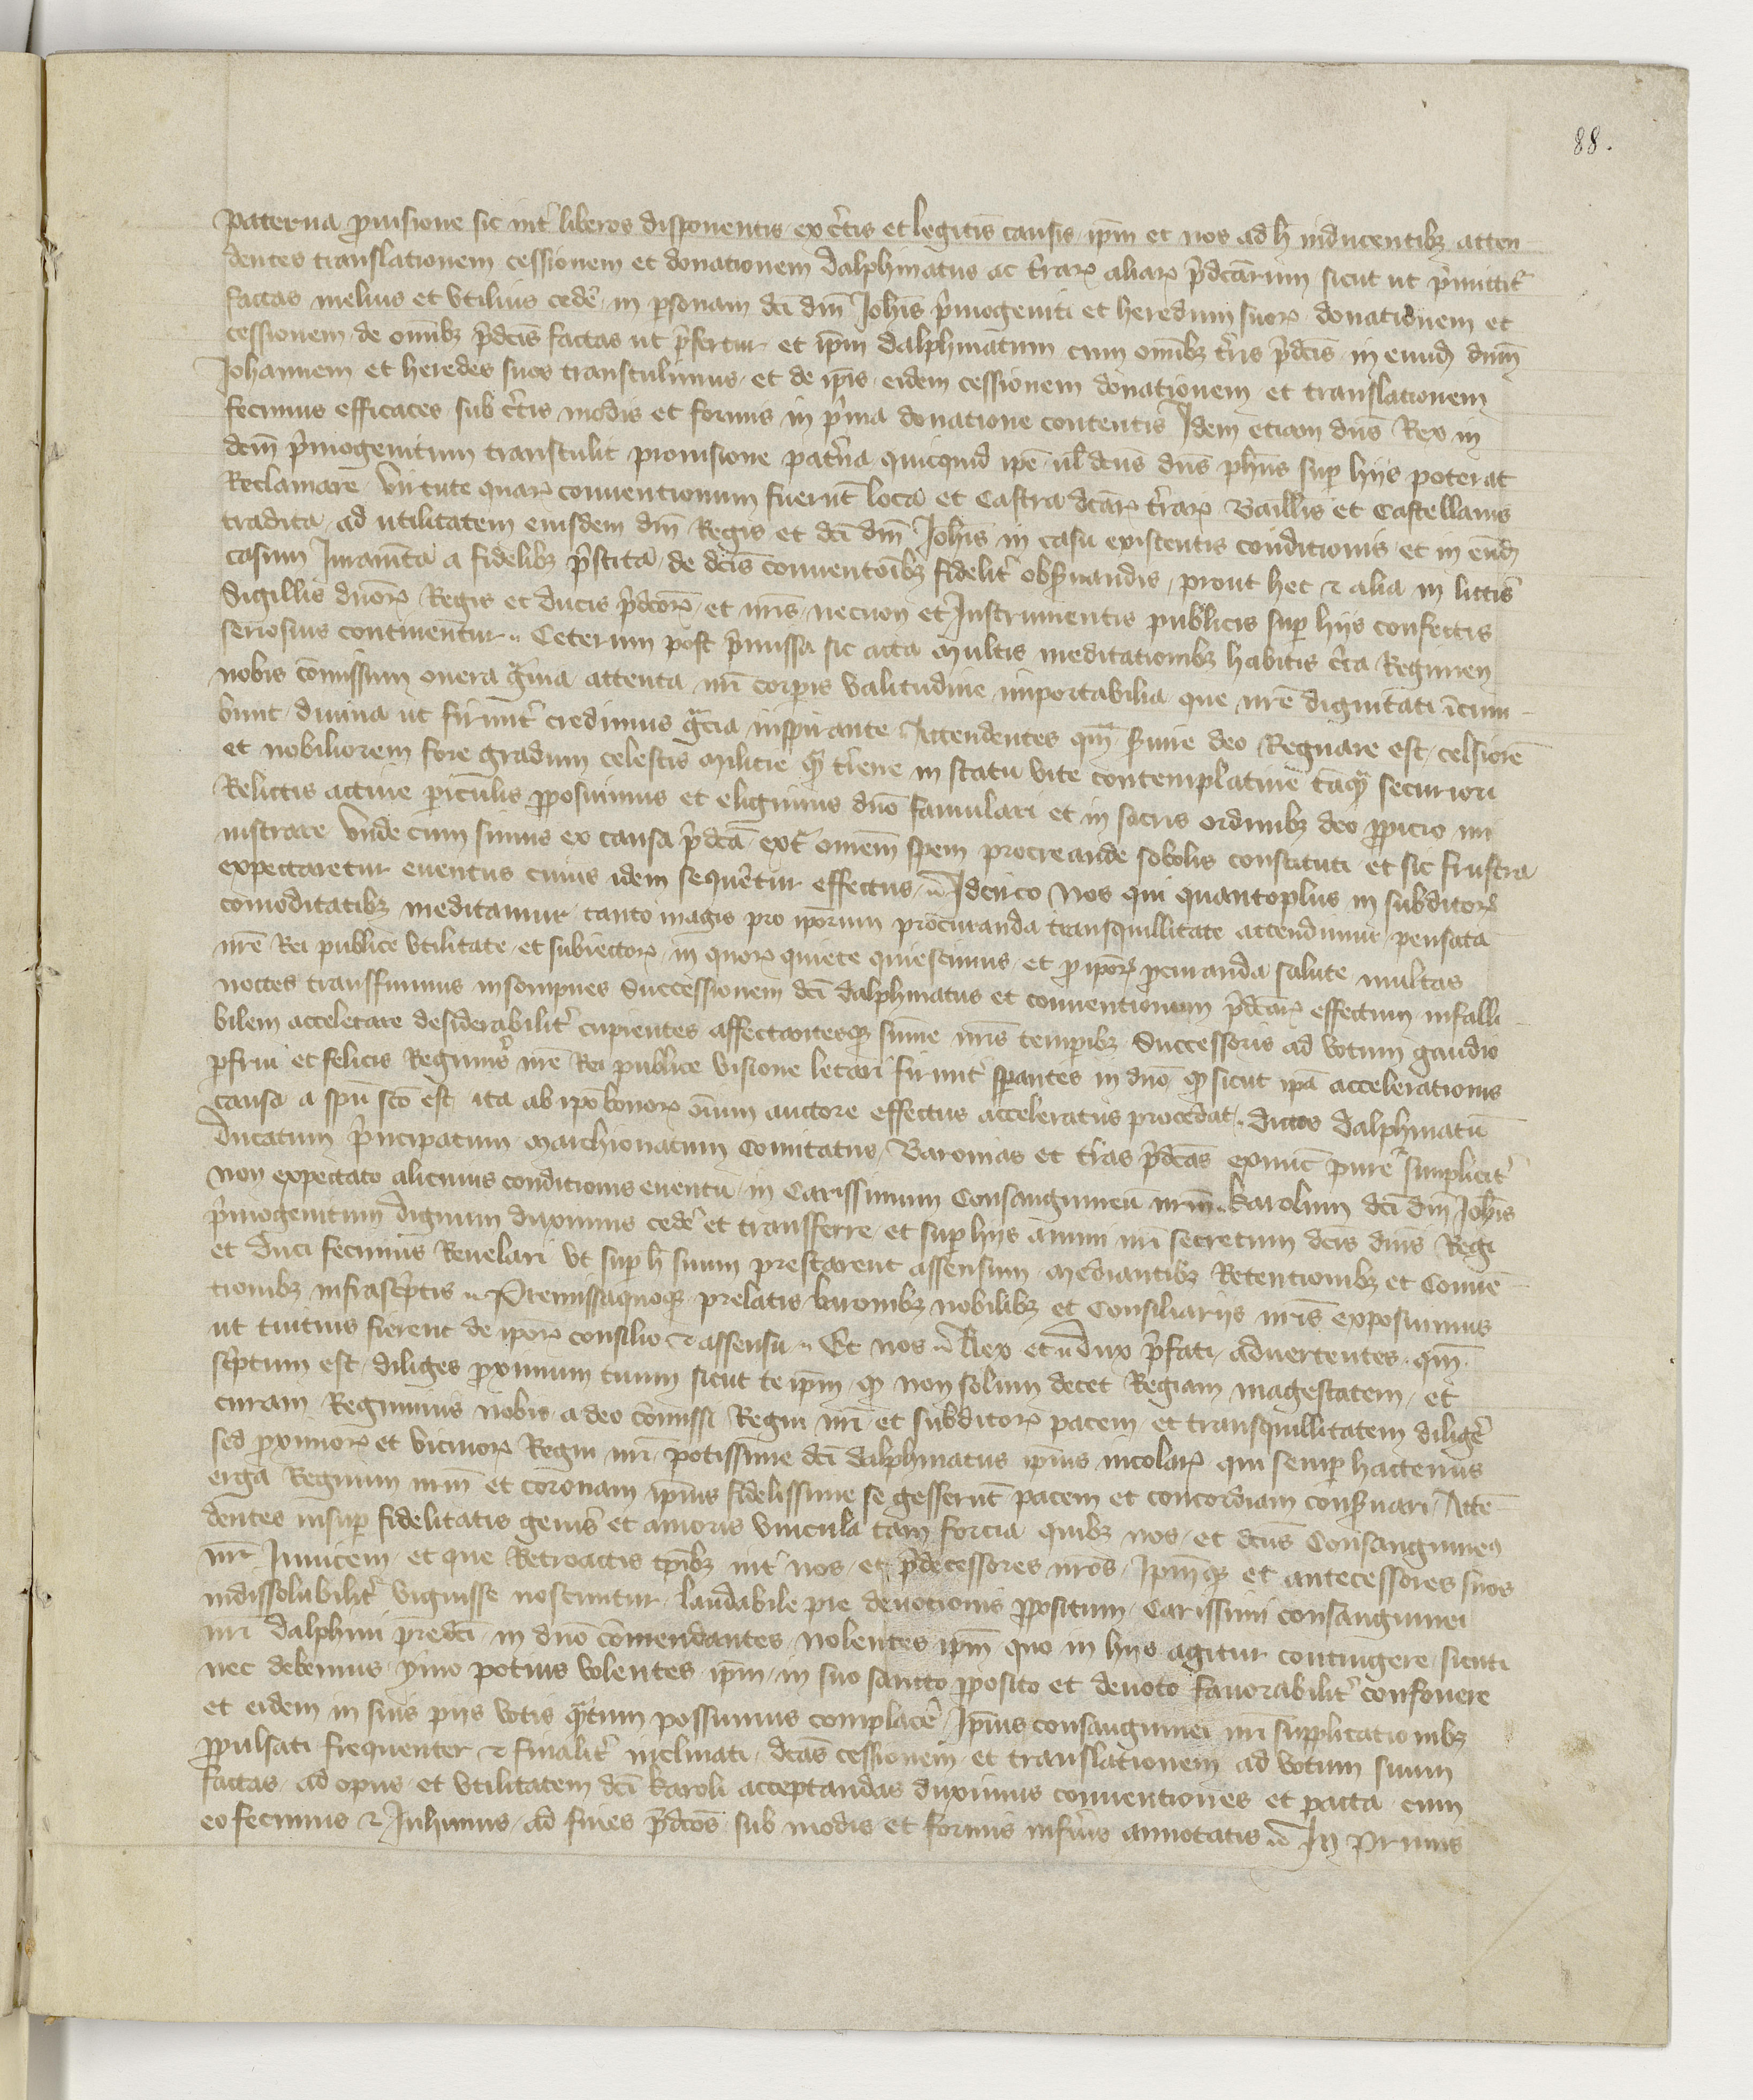 88.
paterna p̱uisione sic int̉ liberos disponentis ex c̉tis et legitis̄ causis ip̄m et nos ad h̄ inducentibꝫ atten
dentes translationem cessionem et donationem dalphinatus ac t̉raꝝ aliaꝝ p̉dcāꝝum sicut ut p̉mittit̉
factas melius et vtilius ced̉e in p̱sonam dc̄i dn̄i Joh̄is p̉mogeniti et heredum suoꝝ donationem et
cessionem de om̄ibꝫ p̉dc̄is factas ut p̉fertur et ip̄m dalphinatum cum om̄ibꝫ t̉ris p̉dc̄is in eund̄ dn̄m
Johannem et heredes suos transtulimus et de ip̄is eidem cessionem donationem et translationem
fecimus efficaces sub c̉tis modis et formis in p̉ma donatione contentis Idem etiam dn̄s Rex in
dc̄m p̉mogenitum transtulit prouisione pat̉na quicquid ip̄e ul̄ dc̄us dn̄s ph̄us sup̱ hijs poterat
Reclamare virtute quaꝝ conuentionum fuerūt loca et Castra dc̄aꝝ t̉raꝝ Bailliis et Castellanis
tradita ad utilitatem eiusdem dn̄i Regis et dc̄i dn̄i Joh̄is in casu existentis conditionis et in eūd̄
casum Juramēta a fidelibꝫ p̉stita de dc̄is conuentōibꝫ fidelit̉ obs̱uandis prout hec ⁊ alia in litt̉is
Sigillis dn̄oꝝ Regis et ducis p̉dc̄oꝝ et nr̄is necnon et Instrumentis publicis sup̱ hijs confectis
seriosius continent̄ur Ceterum post p̉missa sic acta multis meditationibꝫ habitis c̉ca Regimen
nobis cōmissum onera g̉uia attenta nr̄i corp̱is valitudine importabilia que nr̄e dignitati īcum
bunt diuina ut firmit̉ credimus gr̄cia inspirante Attendentes qm̄ s̱uire deo Regnare est celsiorē
et nobiliorem fore gradum celestis milicie qͣ t̉rene in statu vite contemplatiue tāqͣ securiori
Relictis actiue p̱iculis p̱posuimus et eligimus dn̄o famulari et in sacris ordinibꝫ deo p̱picio mi
nistrare vnde cum simus ex causa p̉dc̄a ext̉ om̄em spem procreande sobolis constituti et sic frustra
expectaretur euentus cuius idem sequer̄tur effectus Idcirco nos qui quantoplus in subditoꝝ
cōmoditatibꝫ meditamur tanto magis pro ip̄orum procuranda transquillitate attendimur pensata
nr̄e Rei publice vtilitate et subiectoꝝ in quoꝝ quiete quiescimus et p̱ ip̄oꝝ p̱curanda salute multas
noctes transsimus insompnes Successionem dc̄i dalphinatus et conuentionum p̉dcāꝝ effectum infalli
bilem accelerare desiderabilit̉ cupientes affectantesqꝫ sum̄e nr̄is temp̱ibꝫ Successoris ad votum gaudio
p̱frui et felicis Regimīs nr̄e Rei publice visione letari firmit̉ sp̱antes in dn̄o ꝙ sicut ip̄a accelerationis
causa a sp̄u sc̄o est ita ab ip̄o bonoꝝ oīum auctore effectus acceleratus procedat dictos dalphinatū
ducatum p̉ncipatum marchionatum Comitatus Baronias et t̉ras p̉dc̄as exnūc pure simplicit̉
non expectato alicuius conditionis euentu in Carissimum Consanguineū nr̄m karolum dc̄i dn̄i Joh̄is
p̉mogenitum dignum duximus ced̉e et transferre et sup̱ hijs animi nr̄i secretum dc̄is dn̄is Regi
et duci fecimus Reuelari vt sup̱ h̄ suum prestarent assensum mediantibꝫ Retentionibꝫ et Conuē
tionibꝫ infrasc̉ptis Premissaquoqꝫ prelatis baronibꝫ nobilibꝫ et Consiliarijs nr̄is exposuimus
ut tuitius fierent de ip̄oꝝ consilio ⁊ assensu Et nos Rex et Dux p̉fati aduertentes qm̄
sc̉ptum est diliges p̱ximum tuum sicut te ip̄m ꝙ non solum decet Regiam magestatem et
curam Regiminis nobis a deo cōmissi Regni nr̄i et subditoꝝ pacem et transquillitatem dilig̉e
sed p̱ximoꝝ et vicinoꝝ Regni nr̄i potissime dc̄i dalphinatus ip̄ius incolaꝝ qui semp̱ hactenus
erga Regnum nr̄m et coronam ip̄ius fidelissime se gesserūt pacem et concordiam cons̱uari Attē
dentes insup̱ fidelitatis gen̉is et amoris vincula tam forcia quibꝫ nos et dc̄us Consanguineꝰ
nr̄ Inuicem et que Retroactis tp̄ibꝫ int̉ nos et p̉decessores nr̄os Ip̄mqꝫ et antecessores suos
indissolubilit̉ viguisse noscuntur laudabile pie deuotionis p̱positum Carissimi consanguinei
nr̄i dalphini pred̄ci in dn̄o cōmendantes nolentes ip̄m quo in hijs agitur contingere sicuti
nec debemus ymo potius volentes ip̄m in suo sancto p̱posito et deuoto fauorabilit̉ confouere
et eidem in suis pijs votis qͣtum possumus complac̉e Ip̄ius consanguinei nr̄i supplicationibꝫ
p̱pulsati frequenter ⁊ finalit̉ inclinati dc̄as cessionem et translationem ad votum suum
factas ad opus et vtilitatem dc̄i karoli acceptandas duximus conuentiones et pacta cum
eo fecimus ⁊ Inhimus ad fines p̉dc̄os sub modis et formis inf̉ius annotatis In Primis